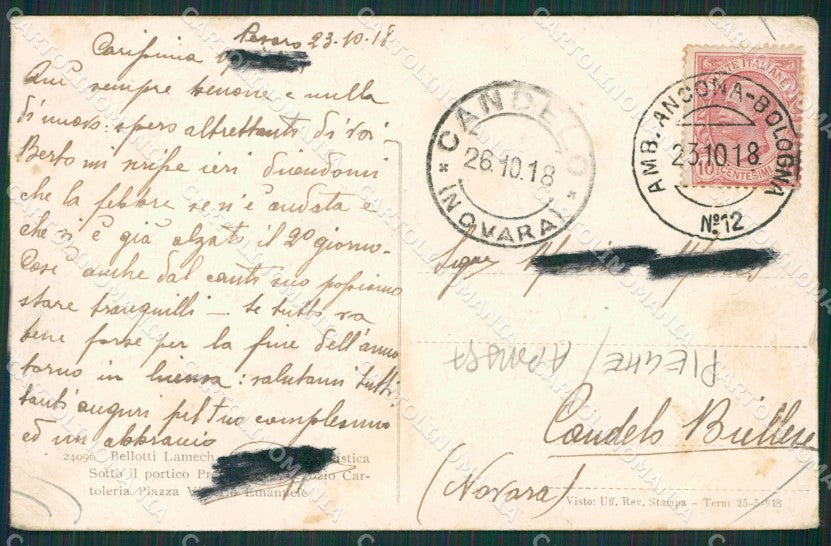 Pesaro 23.10.18
Carissima
Qui sempre benone e nulla
di nuovo: spero altrettanti di voi -
Berto mi scrisse ieri dicendomi
che la febbre se n'è andata e
che si è già alzato il 2º giorno -
Così anche dal canto suo possiamo
stare tranquilli - se tutto va
bene forse per la fine dell'anno
torno in licenza: salutami tutti
tanti auguri pel tuo complesimo
ed un abbraccio
24096 Bellotti Lamech
istica
Sotto il portico
ozio Car-
toleria Piazza Vittorio Emanuele
CANDELO
26.10.18
(NOVARA)
POSTE ITALIANE
10 CENTESIMI
AMB. ANCONA-BOLOGNA
23 10 18
Nº 12
PIEGHE/
Candelo Biellese
(Novara)
Visto: Uff. Rev. Stampa - Terni 25-5-918
CARTOLINOMANIA